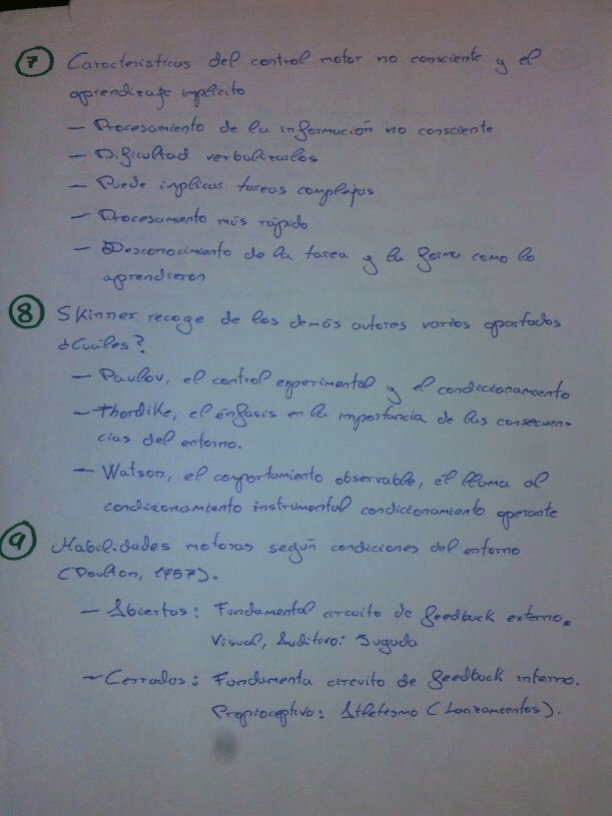 7 Caracteristicas del control motor no consciente y el
aprendizaje implicito
- Procesamiento de la información no consciente
- Dificultad verbalizarlos
- Puede implicar tareas complejas
- Procesamiento más rápido
- Desconocimiento de la tarea y la forma como lo
aprendieron
8 Skinner recoge de los demás autores varios apartados
¿Cuáles?
- Paulov, el control experimental y el condicionamiento
- Thordike, el énfasis en la importancia de las consecuen-
cias del entorno.
- Watson, el comportamiento observable, él llama al
condicionamiento instrumental condicionamiento operante
9 Habilidades motoras según condiciones del entorno
(Poulton, 1957).
- Abiertas: Fundamental circuito de feedback externo.
Visual, Auditivo: Jugada
- Cerradas: Fundamenta circuito de feedback interno.
Propioceptivo: Atletismo (Lanzamientos).